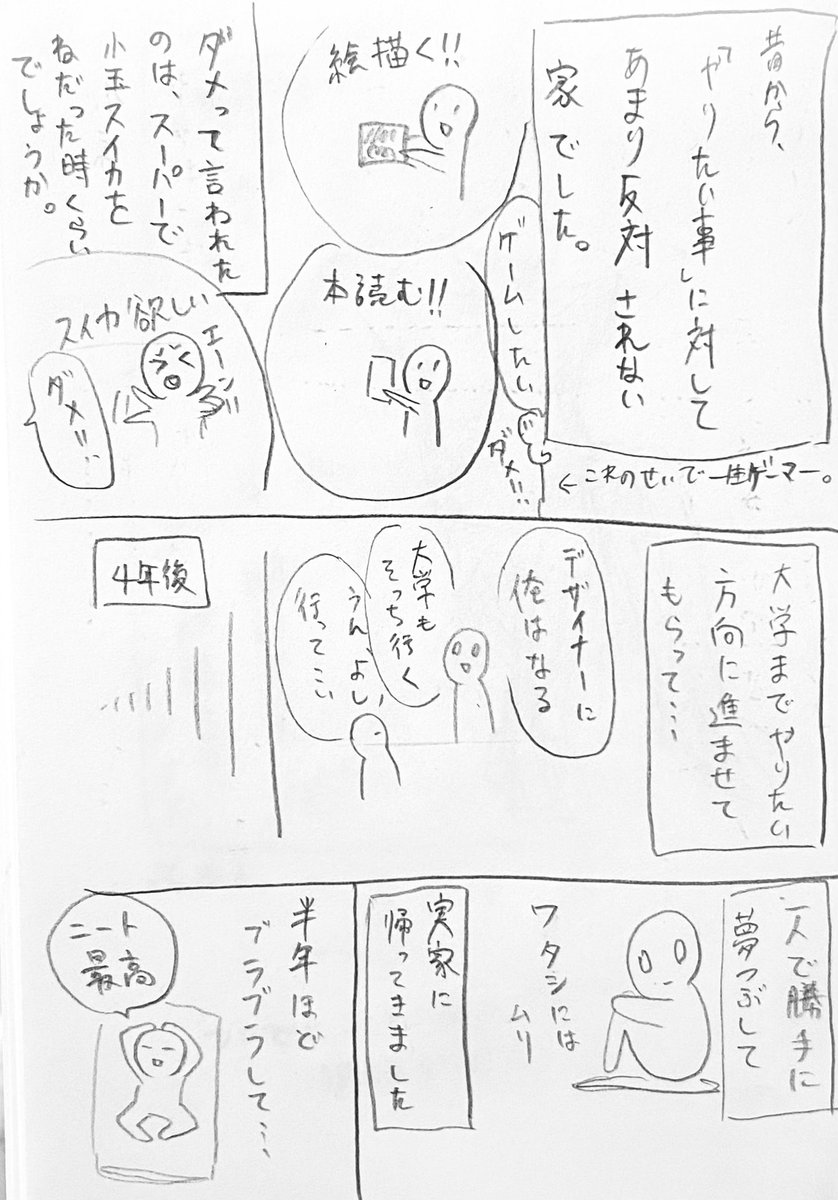 昔から、
「やりたい事」に対して
あまり反対されない
家でした。
←これのせいで一生ゲーマー。
ゲームしたい
ダメ!!
絵描く!!
本読む!!
ダメって言われた
のは、スーパーで
小玉スイカを
ねだった時くらい
でしょうか。
スイカ欲しい
エーン!!
ダメ!!
大学までやりたい
方向に進ませて
もらって…
デザイナーに
俺はなる
大学も
そっち行く
うん、よし
行ってこい
4年後
一人で勝手に
夢つぶして
ワタシには
ムリ
実家に
帰ってきました
半年ほど
ブラブラして…
ニート
最高